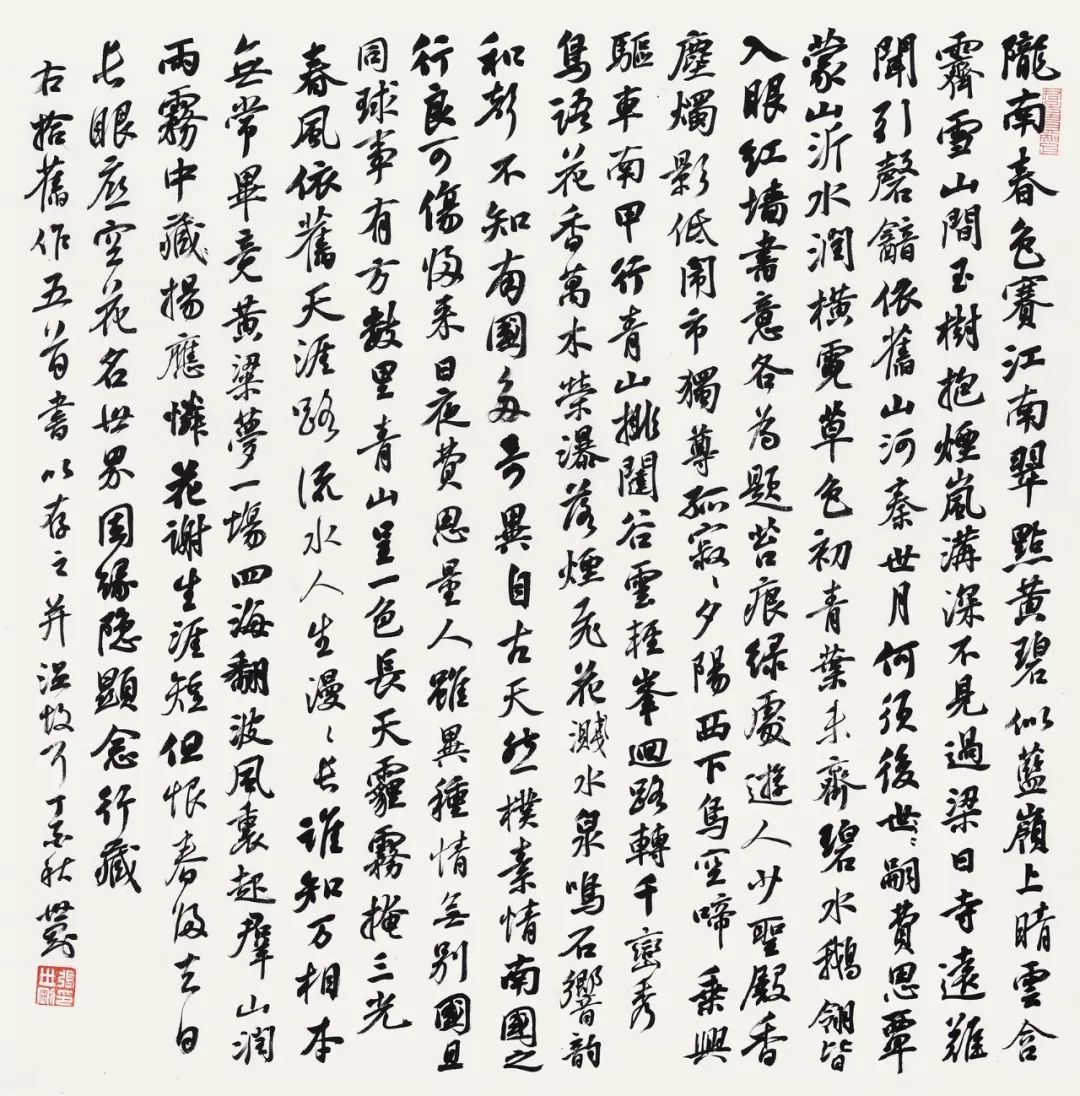 隴南春色賽江南翠點黃碧似藍嶺上晴雲含
霽雪山間玉樹抱煙嵐溝深不見過梁日寺遠難
聞引磬韽依舊山河秦世月何須後世〻嗣費思覃
蒙山沂水潤橫霓草色初青葉未齊碧水鵝翎皆
入眼紅墻書意各為題苔痕綠處遊人少聖殿香
塵燭影低鬧市獨尊孤寂〻夕陽西下鳥空啼乘興
驅車南甲行青山排闥谷雲輕峯迴路轉千巒秀
鳥語花香萬木榮瀑落煙飛花濺水泉鳴石響音韵
和彭不知南國多奇異自古天然樸素情南國之
行良可傷歸来日夜費思量人雖異種情無別國且
同球事有方數里青山呈一色長天霾霧掩三光
春風依舊天涯路流水人生漫〻長誰知万相本
無常畢竟黃粱夢一場四海翻波風裏起群山潤
雨霧中藏揚應憐花謝生涯短但恨春歸去日
長眼底空花名世界因緣隱顯念行藏
右拾舊作五首書以存之并温故耳丁酉秋世剛
張氏世剛